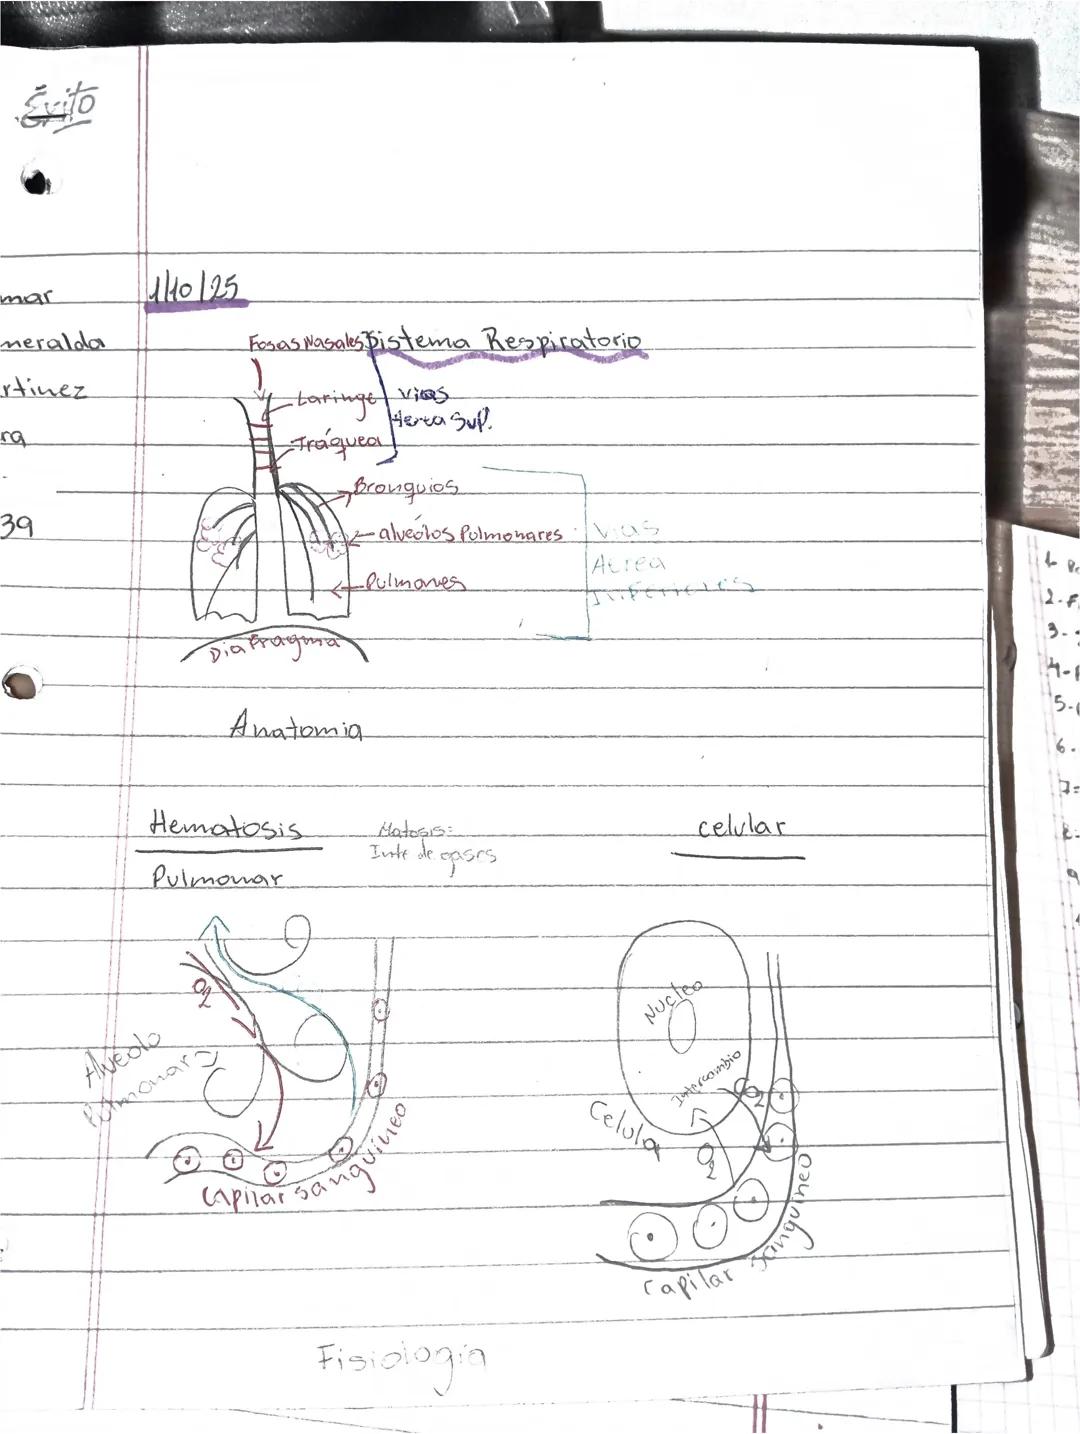 Éxito
1/10/25
mar
meralda
rtinez
ra
39
Fosas Nasales Sistema Respiratorio
Laringe
Vias
Aerea Sup.
Tráquea
Bronquios
alveólos Pulmonares
Pulmones
Vias
Aerea
Inferiores
Diafragma
Anatomia
Hematosis
Pulmonar
Matosis:
Inte de gases
celular
O2
Alveolo
Pulmonar
Capilar sanguineo
Nucleo
Intercambio
Celula
O2
Capilar sanguineo
Fisiologia
1-
2-F
3-
4-
5-
6.
7=